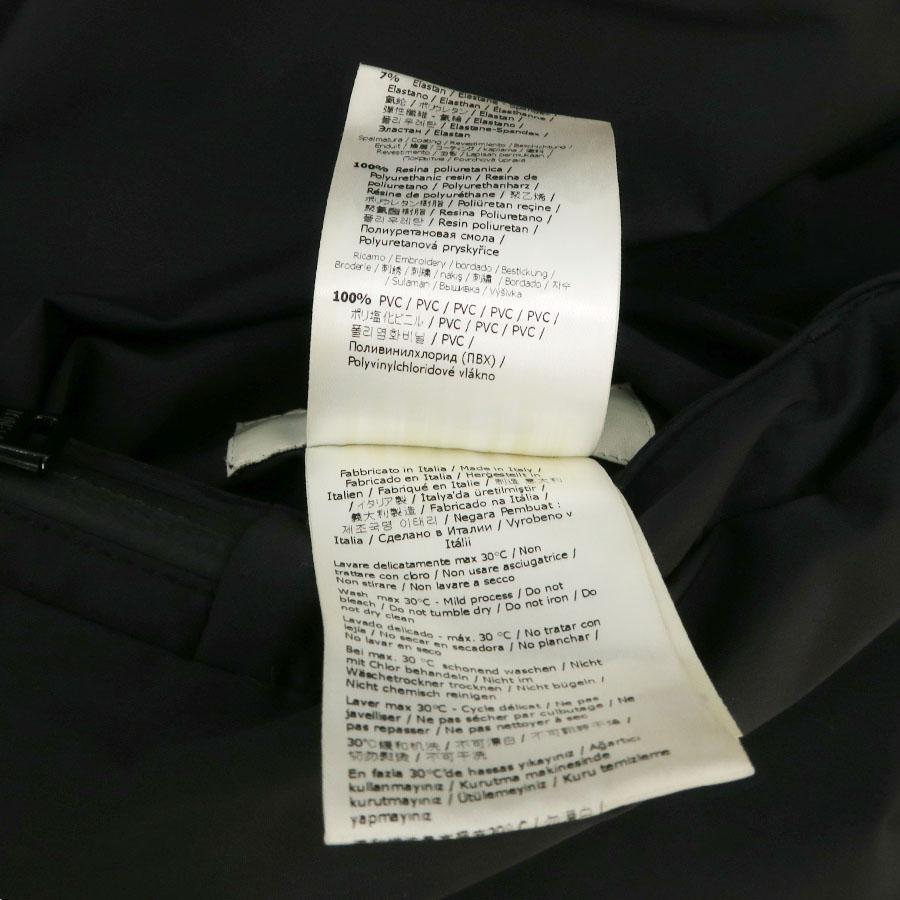 7% Elastan / Elastane - Spandex /
Elastano / Elasthan / Elasthanne /
氨纶 / ポリウレタン / Elastan /
彈性纖維 - 氨綸 / Elastano /
폴리우레탄 / Elastane-Spandex /
Эластан / Elastan
Spalmatura / Coating / Revestimiento / Beschichtung /
Enduit / 涂层 / コーティング / kaplama / 塗料 /
Revestimento / 코팅 / Lapisan permukaan /
Покрытие / Povrchová úprava
100% Resina poliuretanica /
Polyurethanic resin / Resina de
poliuretano / Polyurethanharz /
Résine de polyuréthane / 聚乙烯 /
ポリウレタン樹脂 / Poliüretan reçine /
聚氨酯樹脂 / Resina Poliuretano /
폴리우레탄 / Resin poliuretan /
Полиуретановая смола /
Polyuretanová pryskyřice
Ricamo / Embroidery / bordado / Bestickung /
Broderie / 刺绣 / 刺繍 / nakış / 刺繡 / Bordado / 자수
/ Sulaman / Вышивка / Výšivka
100% PVC / PVC / PVC / PVC / PVC /
ポリ塩化ビニル / PVC / PVC / PVC /
폴리염화비닐 / PVC /
Поливинилхлорид (ПВХ) /
Polyvinylchloridové vlákno
Fabbricato in Italia / Made in Italy /
Fabricado en Italia / Hergestellt in
Italien / Fabriqué en Italie / 制造 意大利
/ イタリア製 / İtalya'da üretilmiştir /
義大利製造 / Fabricado na Itália /
제조국명 이태리 / Negara Pembuat :
Italia / Сделано в Италии / Vyrobeno v
Itálii
Lavare delicatamente max 30°C / Non
trattare con cloro / Non usare asciugatrice /
Non stirare / Non lavare a secco
Wash max 30°C - Mild process / Do not
bleach / Do not tumble dry / Do not iron / Do
not dry clean
Lavado delicado - máx. 30 °C / No tratar con
lejía / No secar en secadora / No planchar /
No lavar en seco
Bei max. 30 °C schonend waschen / Nicht
mit Chlor behandeln / Nicht im
Wäschetrockner trocknen / Nicht bügeln /
Nicht chemisch reinigen
Laver max 30°C - Cycle délicat / Ne pas
javelliser / Ne pas sécher par culbutage / Ne
pas repasser / Ne pas nettoyer à sec
30°C緩和机洗 / 不可漂白 / 不可翻转干燥 /
切勿熨烫 / 不可干洗
En fazla 30°C'de hassas yıkayınız / Ağartıcı
kullanmayınız / Kurutma makinesinde
kurutmayınız / Ütülemeyiniz / Kuru temizleme
yapmayınız